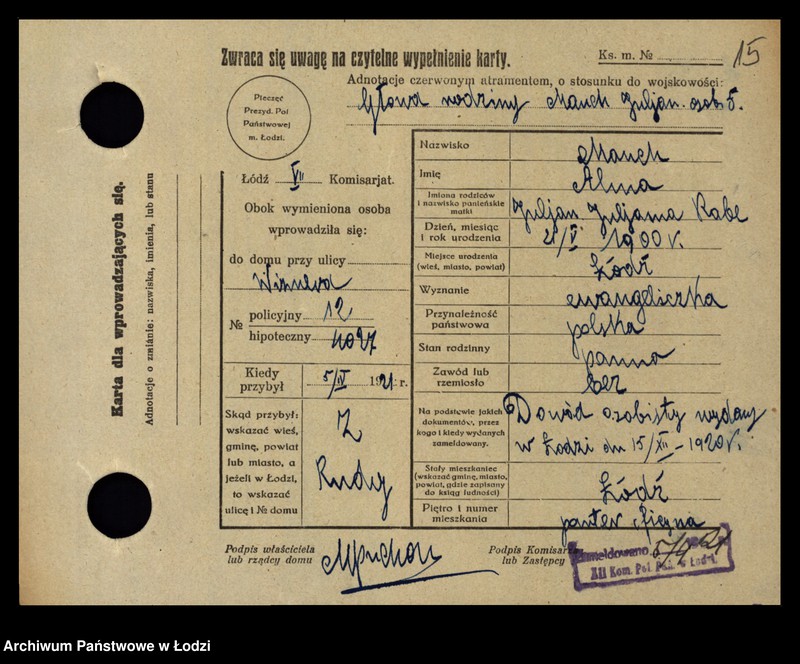 Zwraca się uwagę na czytelne wypełnienie karty.
Ks. m. №
15
Adnotacje czerwonym atramentem, o stosunku do wojskowości:
Głowa rodziny Manch Juljan. osób 5.
Pieczęć
Prezyd. Pol
Państwowej
m. Łodzi.
Karta dla wprowadzających się.
Adnotacje o zmianie: nazwiska, imienia, lub stanu
Łódź VII Komisarjat.
Obok wymieniona osoba
wprowadziła się:
do domu przy ulicy
Wiznera
№ policyjny 12
hipoteczny 4027
Kiedy przybył 5/IV 1921 r.
Skąd przybył:
wskazać wieś,
gminę, powiat
lub miasto, a
jeżeli w Łodzi,
to wskazać
ulicę i № domu
Z
Rudy
Nazwisko Manch
Imię Alma
Imiona rodziców i nazwisko panieńskie matki Juljan Juljanna Rabe
Dzień, miesiąc i rok urodzenia 21/V 1900 r.
Miejsce urodzenia (wieś, miasto, powiat) Łódź
Wyznanie ewangeliczka
Przynależność państwowa polska
Stan rodzinny panna
Zawód lub rzemiosło bez
Na podstawie jakich dokumentów, przez kogo i kiedy wydanych zameldowany.
Dowód osobisty wydany
w Łodzi dn 15/XII - 1920 r.
Stały mieszkaniec (wskazać gminę, miasto, powiat, gdzie zapisany do ksiąg ludności) Łódź
Piętro i numer mieszkania parter oficyna
Podpis właściciela
lub rządcy domu
Podpis Komisarza
lub Zastępcy
Zameldowano 5/4 1921
XII Kom. Pol. Pań. w Łodzi
Archiwum Państwowe w Łodzi